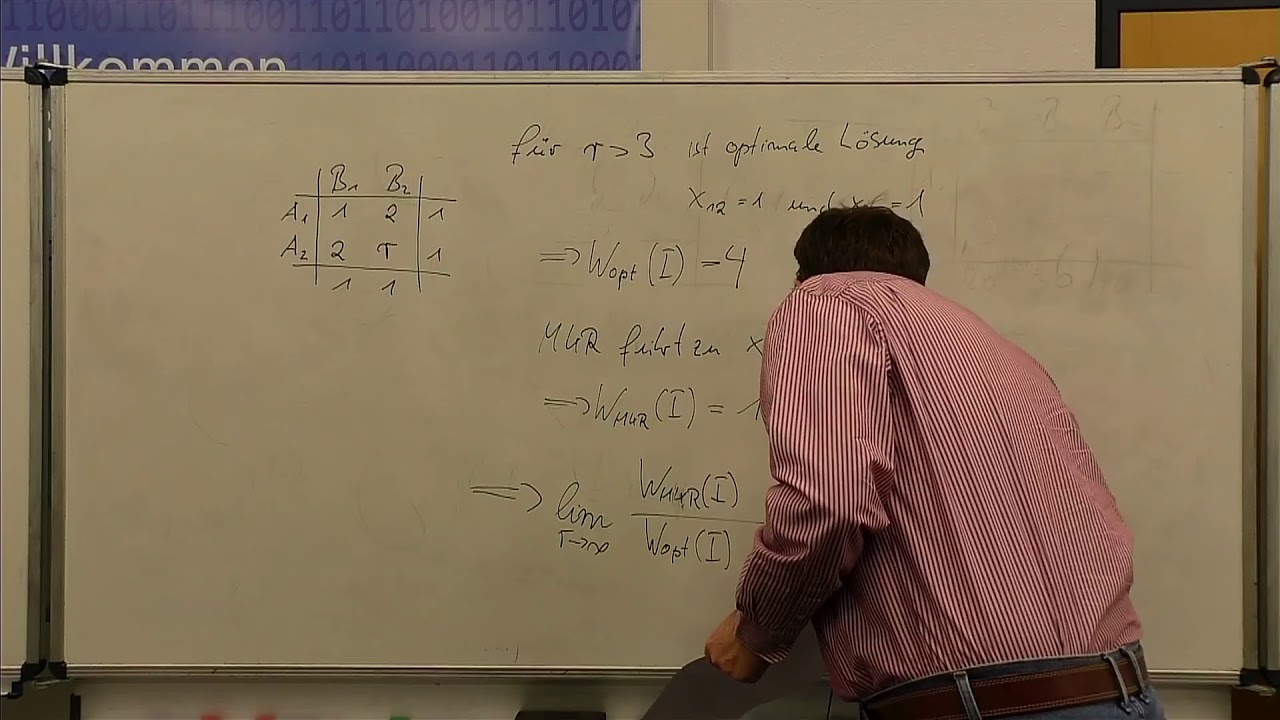 11000110100101101001010010110101
Willkommen
B₁ B₂
A₁ 1 2 1
A₂ 2 τ 1
1 1
für τ > 3 ist optimale Lösung
x₁₂ = 1 und = 1
⟹ Wopt(I) = 4
MKR führt zu x
⟹ WMKR(I) = 1
⟹ lim τ→∞ WMKR(I) / Wopt(I)